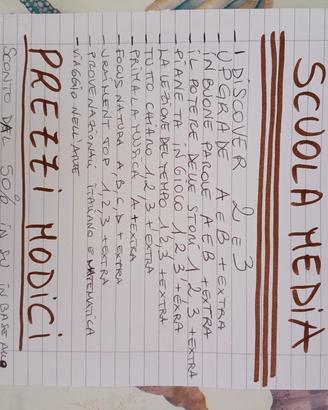 SCUOLA MEDIA
- I DISCOVER 2 E 3
- UPGRADE A E B + EXTRA
- IN BUONE PAROLE A E B + EXTRA
- IL POTERE DELLE STORIE 1, 2, 3 + EXTRA
- PIANETA IN GIOCO 1 2 3 + EXTRA
- LA LEZIONE DEL TEMPO 1, 2, 3 + EXTRA
- TUTTO CHIARO 1, 2, 3 + EXTRA
- PRIMA LA MUSICA A + EXTRA
- FOCUS NATURA A, B, C, D + EXTRA
- TOP 1, 2, 3 + EXTRA
- PROVE NAZIONALI ITALIANO E MATEMATICA
- VIAGGIO NELL'ARTE
PREZZI MODICI
SCONTO DAL 50% IN SU IN BASE ALLO